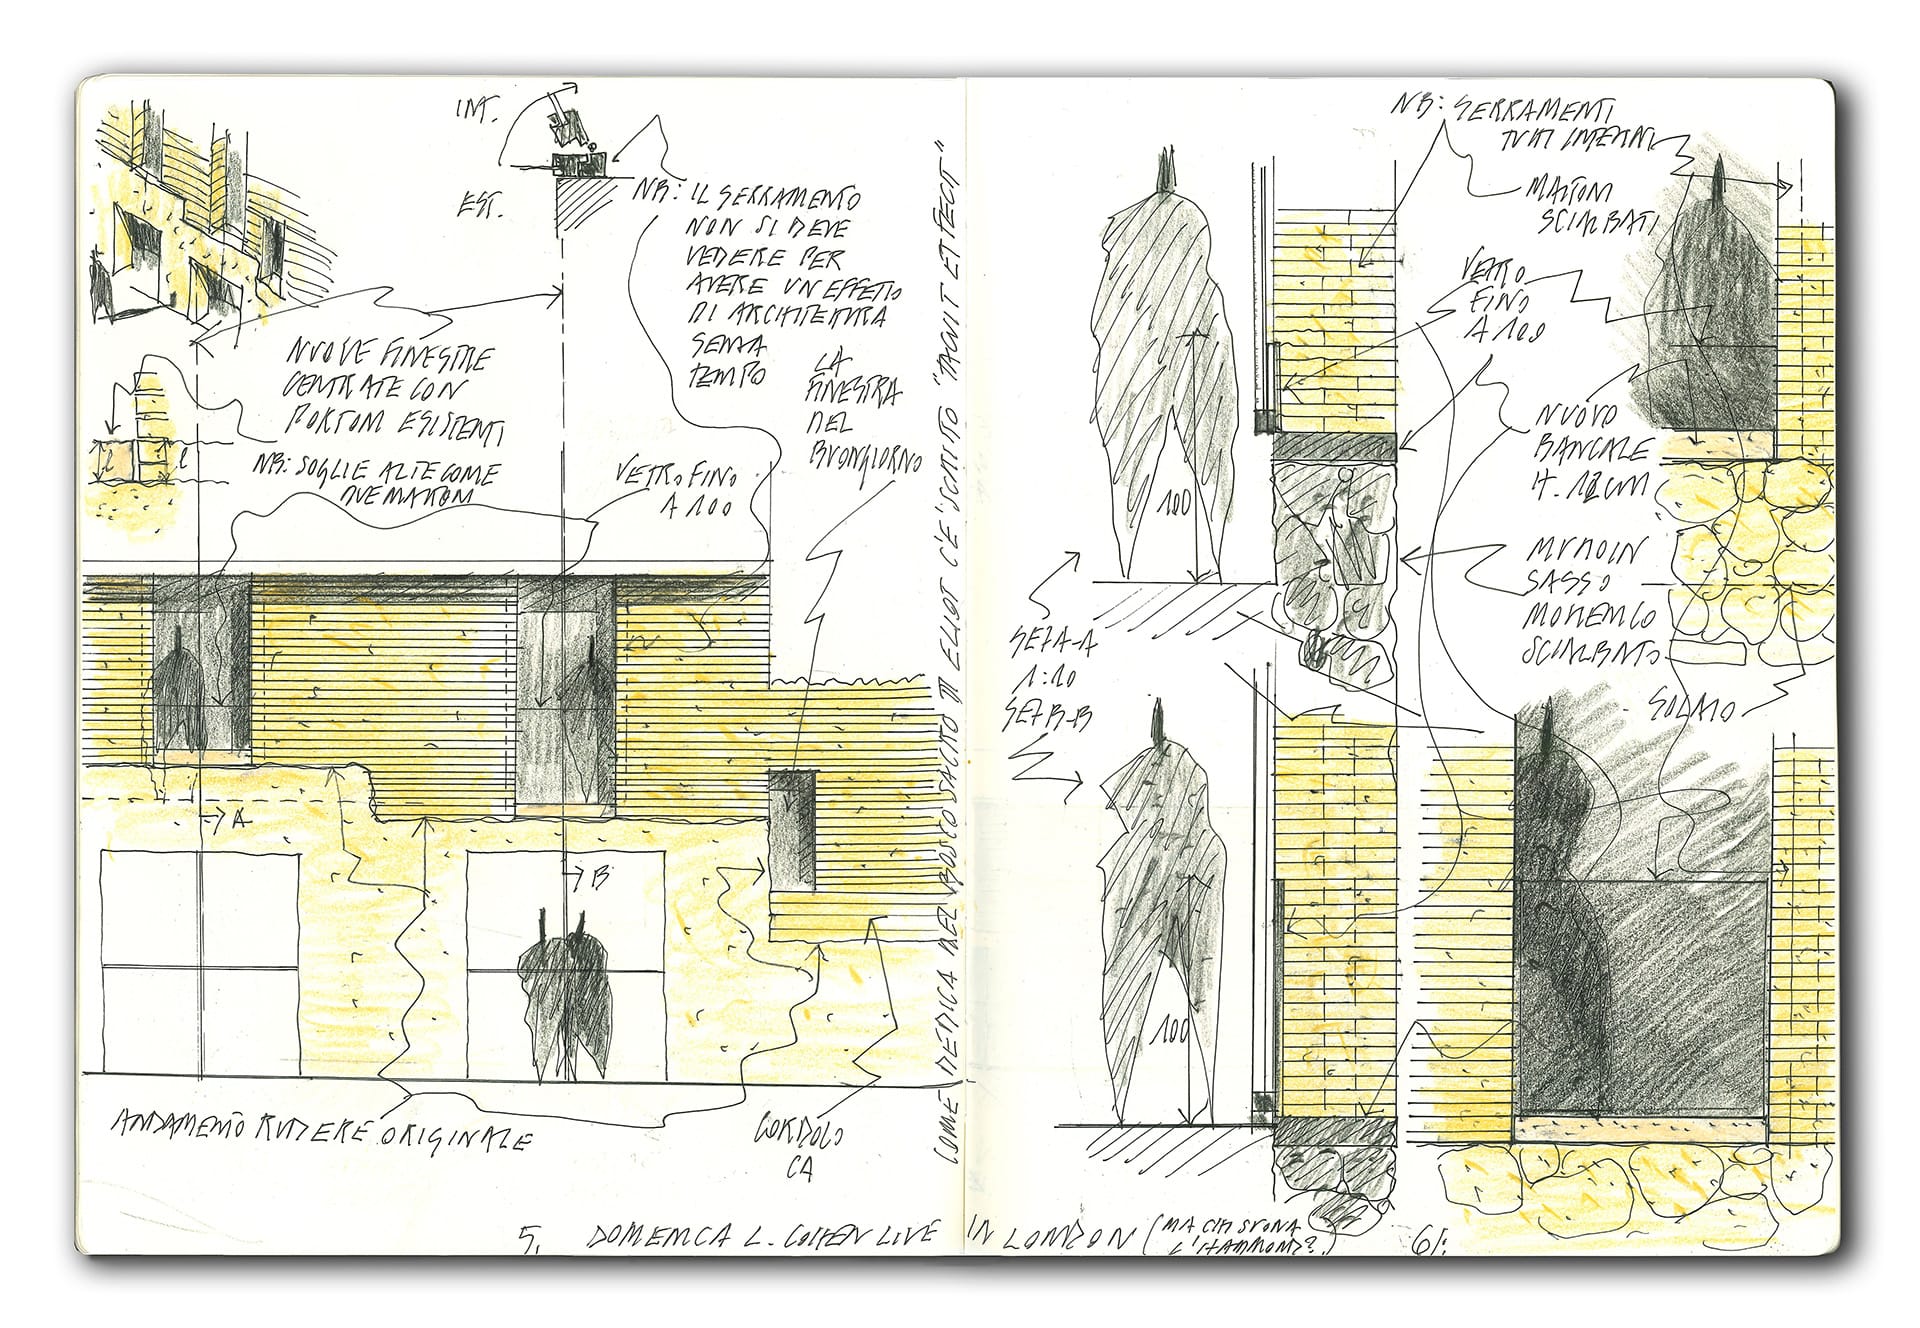 INT.
EST.
NB: IL SERRAMENTO
NON SI DEVE
VEDERE PER
AVERE UN EFFETTO
DI ARCHITETTURA
SENZA
TEMPO
NUOVE FINESTRE
CENTRATE CON
PORTONI ESISTENTI
NB: SOGLIE ALTE COME
DUE MATTONI
VETRO FINO
A 100
LA
FINESTRA
NEL
BUONGIORNO
A
B
ANDAMENTO RUDERE ORIGINALE
CORDOLO
CA
COME DEDICA NEL BOSCO SACRO DI ELIOT C'È SCRITTO "TACUIT ET FECIT"
NB: SERRAMENTI
TUTTI INTERNI
MATTONI
SCIALBATI
VETRO
FINO
A 100
NUOVO
BANCALE
H. 12 CM
MURO IN
SASSO
SCIALBATO
SOLAIO
100
SEZ A-A
1:10
SEZ B-B
100
5.
DOMENICA L. COHEN LIVE IN LONDON (MA CHI SUONA
L'HAMMOND?)
6/: